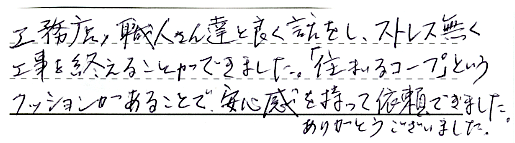 工務店、職人さん達と良く話をし、ストレス無く
工事を終えることができました。「住まいるコープ」という
クッションがあることで、安心感を持って依頼できました。
ありがとうございました。